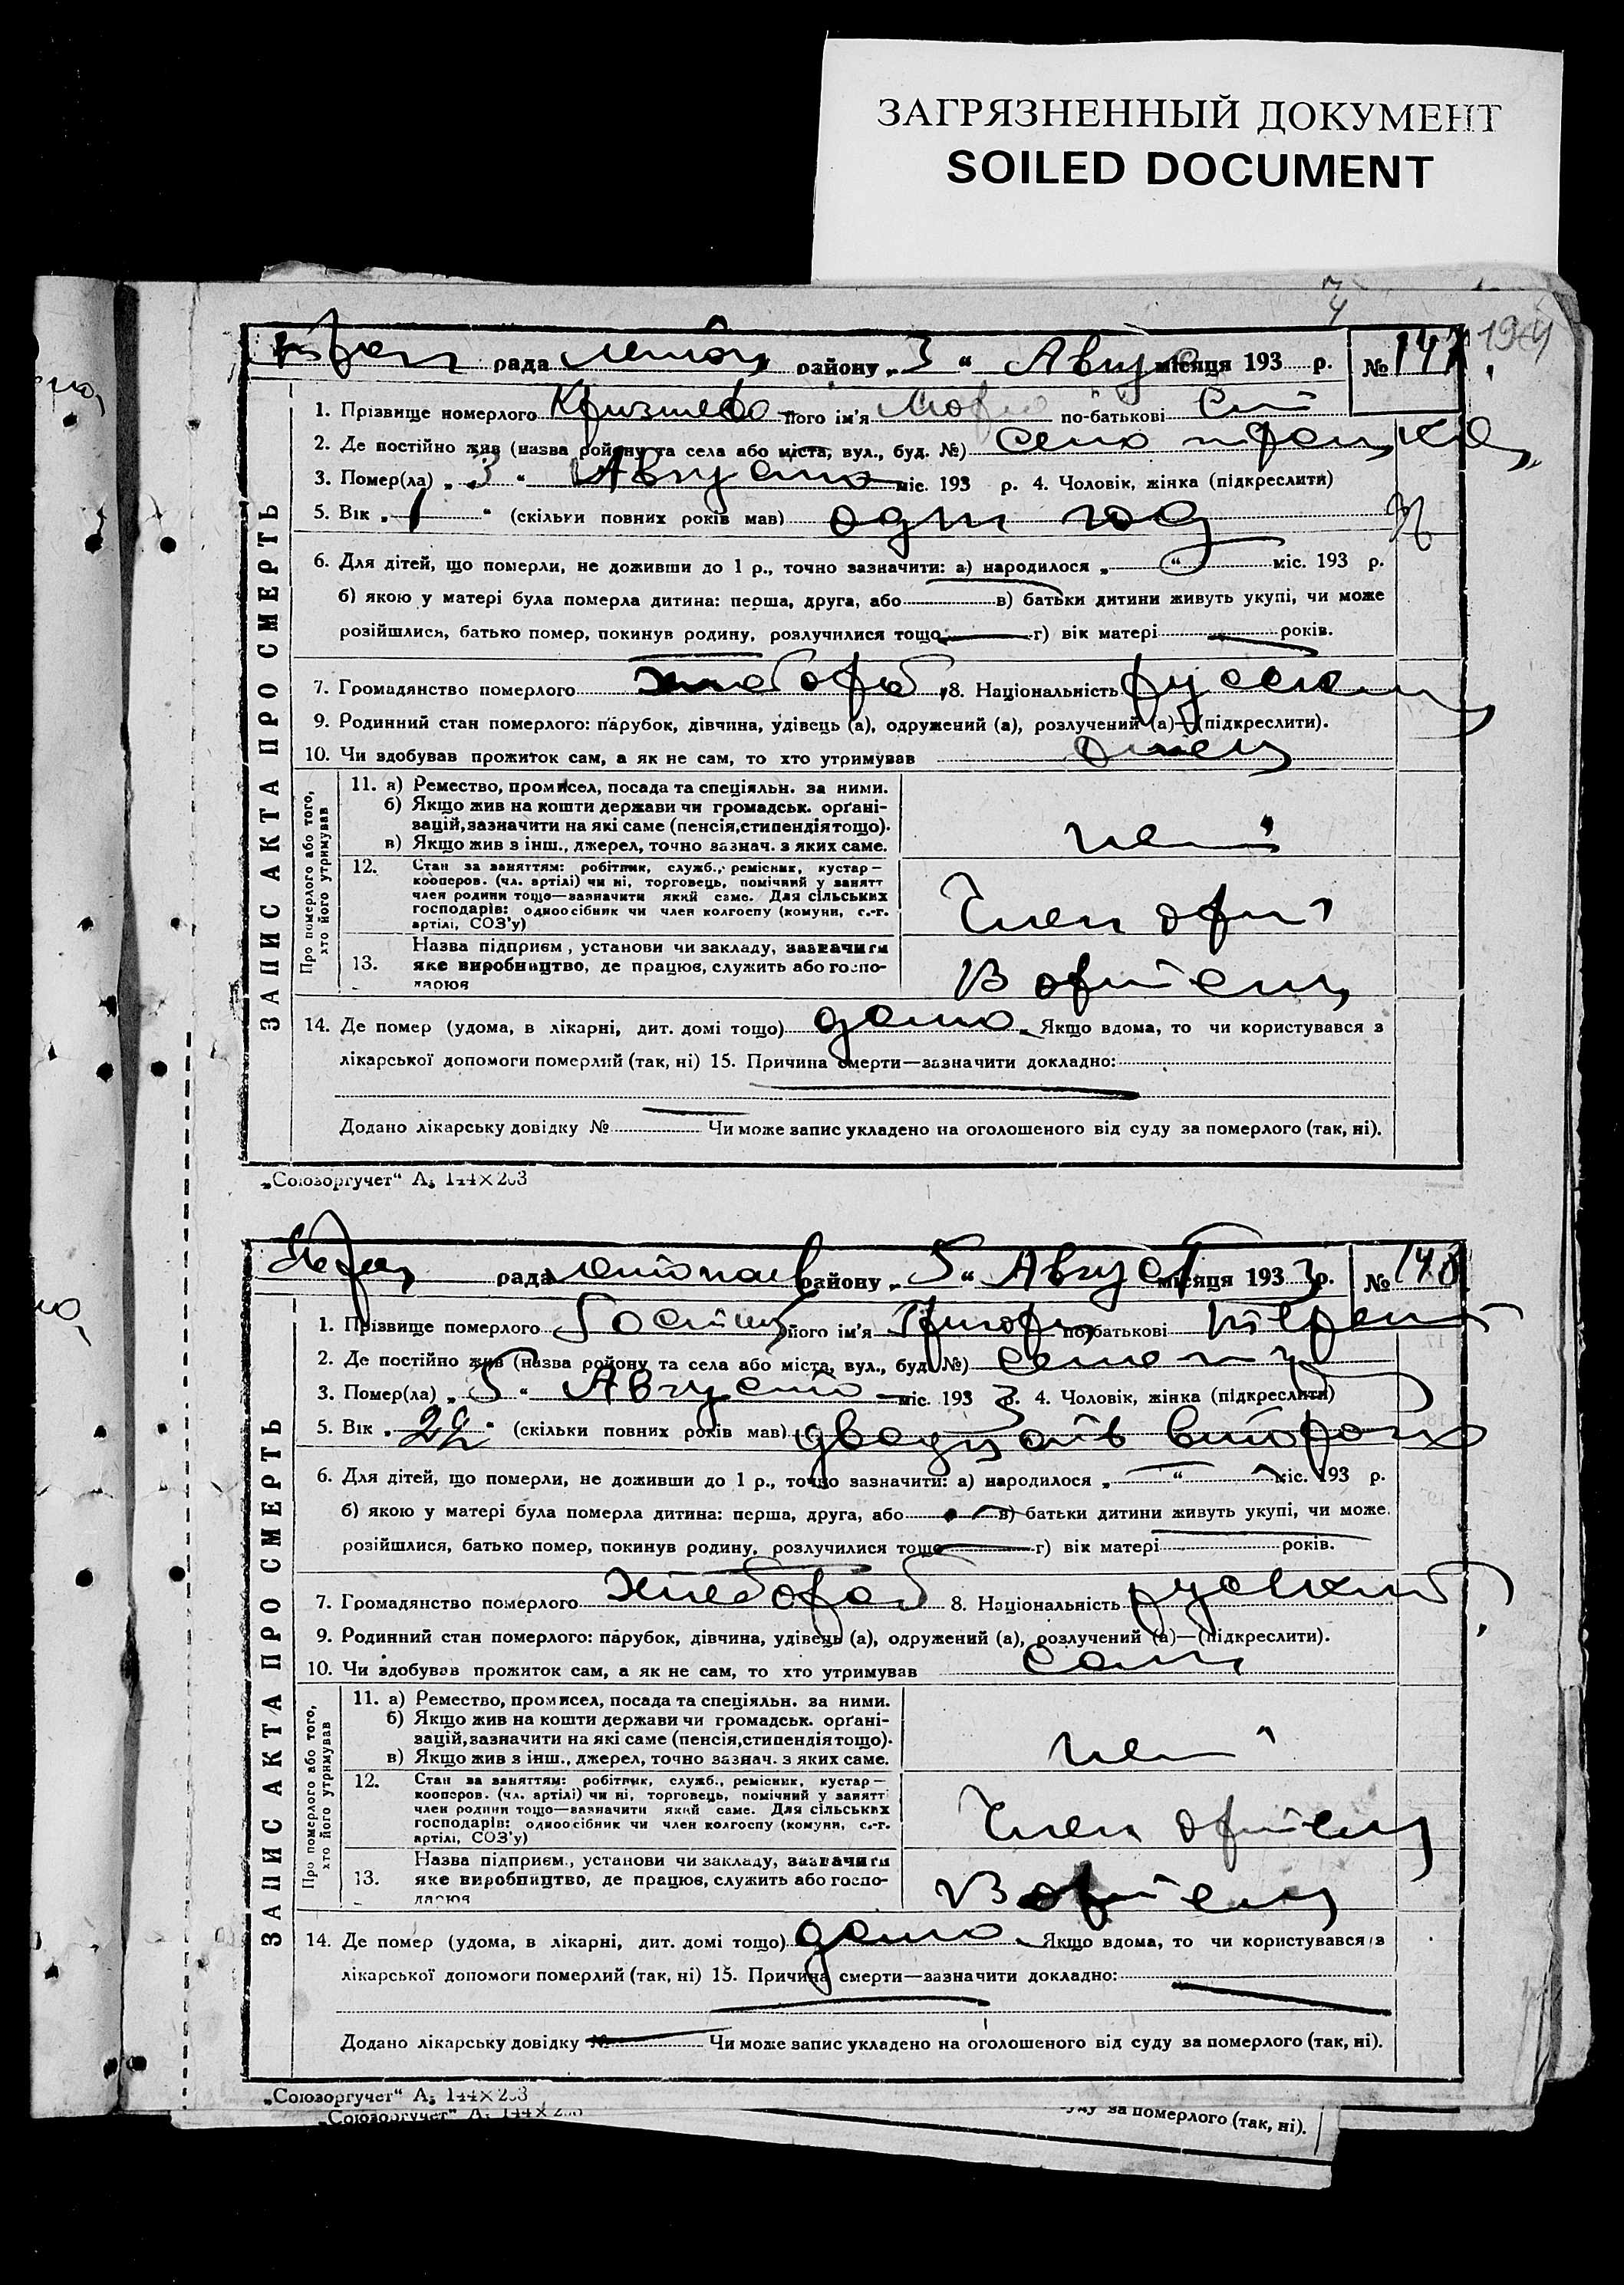 ЗАГРЯЗНЕННЫЙ ДОКУМЕНТ
SOILED DOCUMENT
рада району „3“ Август місяця 193 р. № 147
1. Прізвище померлого його ім'я по-батькові
2. Де постійно жив (назва району та села або міста, вул., буд. №) село
3. Помер(ла) „3“ Августа міс. 193 р. 4. Чоловік, жінка (підкреслити)
5. Вік „1“ (скільки повних років мав) один год
6. Для дітей, що померли, не доживши до 1 р., точно зазначити: а) народилося „ “ міс. 193 р.
б) якою у матері була померла дитина: перша, друга, або в) батьки дитини живуть укупі, чи може
розійшлися, батько помер, покинув родину, розлучилися тощо г) вік матері років.
7. Громадянство померлого хлебороб 8. Національність
9. Родинний стан померлого: парубок, дівчина, удівець (а), одружений (а), розлучений (а)—(підкреслити).
10. Чи здобував прожиток сам, а як не сам, то хто утримував отец
11. а) Ремество, промисел, посада та спеціяльн. за ними.
б) Якщо жив на кошти держави чи громадськ. орґані-
зацій, зазначити на які саме (пенсія, стипендія тощо).
в) Якщо жив з інш., джерел, точно зазнач. з яких саме.
нет
12. Стан за заняттям: робітник, служб., ремісник, кустар—
кооперов. (чл. артілі) чи ні, торговець, помічний у занятт
член родини тощо—зазначити який саме. Для сільських
господарів: одноосібник чи член колгоспу (комуни, с.-г.
артілі, СОЗ'у)
Член
13. Назва підприєм., установи чи закладу, зазначити
яке виробництво, де працює, служить або госпо-
дарює
В артели
14. Де помер (удома, в лікарні, дит. домі тощо) дома Якщо вдома, то чи користувався з
лікарської допомоги померлий (так, ні) 15. Причина смерти—зазначити докладно:
Додано лікарську довідку № Чи може запис укладено на оголошеного від суду за померлого (так, ні).
ЗАПИС АКТА ПРО СМЕРТЬ
Про померлого або того,
хто його утримував
„Союзоргучет“ А₅ 144×203
рада району „5“ Август місяця 1933 р. № 148
1. Прізвище померлого його ім'я по-батькові
2. Де постійно жив (назва району та села або міста, вул., буд. №) село
3. Помер(ла) „5“ Августа міс. 1933 р. 4. Чоловік, жінка (підкреслити)
5. Вік „22“ (скільки повних років мав) двадцать
6. Для дітей, що померли, не доживши до 1 р., точно зазначити: а) народилося „ “ міс. 193 р.
б) якою у матері була померла дитина: перша, друга, або в) батьки дитини живуть укупі, чи може
розійшлися, батько помер, покинув родину, розлучилися тощо г) вік матері років.
7. Громадянство померлого хлебороб 8. Національність руский
9. Родинний стан померлого: парубок, дівчина, удівець (а), одружений (а), розлучений (а)—(підкреслити).
10. Чи здобував прожиток сам, а як не сам, то хто утримував сам
11. а) Ремество, промисел, посада та спеціяльн. за ними.
б) Якщо жив на кошти держави чи громадськ. орґані-
зацій, зазначити на які саме (пенсія, стипендія тощо).
в) Якщо жив з інш., джерел, точно зазнач. з яких саме.
нет
12. Стан за заняттям: робітник, служб., ремісник, кустар—
кооперов. (чл. артілі) чи ні, торговець, помічний у занятт
член родини тощо—зазначити який саме. Для сільських
господарів: одноосібник чи член колгоспу (комуни, с.-г.
артілі, СОЗ'у)
Член артели
13. Назва підприєм., установи чи закладу, зазначити
яке виробництво, де працює, служить або госпо-
дарює
В артели
14. Де помер (удома, в лікарні, дит. домі тощо) дома Якщо вдома, то чи користувався з
лікарської допомоги померлий (так, ні) 15. Причина смерти—зазначити докладно:
Додано лікарську довідку № Чи може запис укладено на оголошеного від суду за померлого (так, ні).
ЗАПИС АКТА ПРО СМЕРТЬ
Про померлого або того,
хто його утримував
„Союзоргучет“ А₅ 144×203
„Союзоргучет“
за померлого (так, ні).